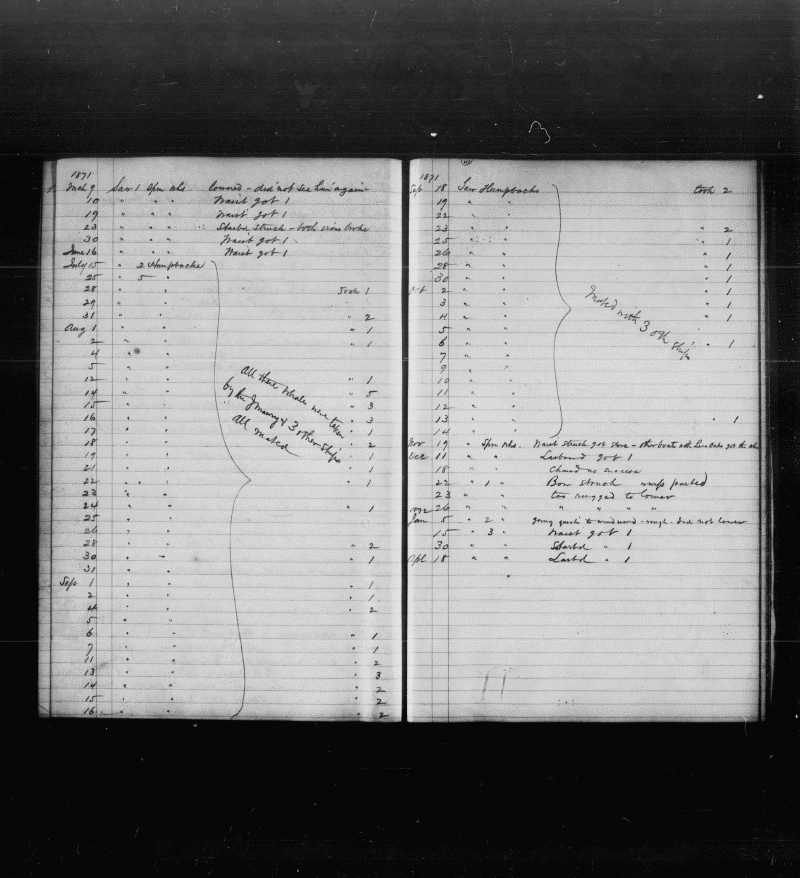 1871
Mch 9 Saw 1 Spm whs lowered - did not see him again -
10 " " " Waist got 1
19 " " " Waist got 1
23 " " " Starbd struck - both irons broke
30 " " " Waist got 1
June 16 " " " Waist got 1
July 15 " 2 Humpbacks
25 " 5 "
28 " " Took 1
29 " "
31 " " " 2
Aug 1 " " " 1
2 " " " 1
4 " "
5 " "
12 " " " 1
14 " " " 5
15 " " " 3
16 " " " 3
17 " " " 1
18 " " " 2
19 " " " 1
21 " " " 1
22 " " " 1
23 " "
24 " " " 1
25 " "
26 " "
28 " " " 2
30 " " " 1
31 " "
Sep 1 " " " 1
2 " " " 1
4 " " " 2
5 " "
6 " " " 1
7 " " " 1
11 " " " 2
13 " " " 3
14 " " " 2
15 " " " 2
16 " " " 2
All these whales were taken
by the J Maury & 3 other ships
all mated
1871
Sep 18 Saw Humpbacks took 2
19 " "
22 " "
23 " " " 2
25 " " " 1
26 " " " 1
28 " " " 1
30 " " " 1
Oct 2 " " " 1
3 " " " 1
4 " " " 1
5 " "
6 " " " 1
7 " "
9 " "
10 " "
11 " "
12 " "
13 " " " 1
14 " "
Mated with 3 oth ships
Nov 19 " Spm whs. Waist struck got stove - other boats got the wh
Dec 11 " " Larboard got 1
18 " " Chased no success
22 " 1 " Bow struck warp parted
23 " " too rugged to lower
26 " " " " " "
1872
Jan 5 " 2 " going quick to windward - rough - did not lower
15 " 3 " Waist got 1
30 " " Starbd " 1
Apl 18 " " Larbd " 1